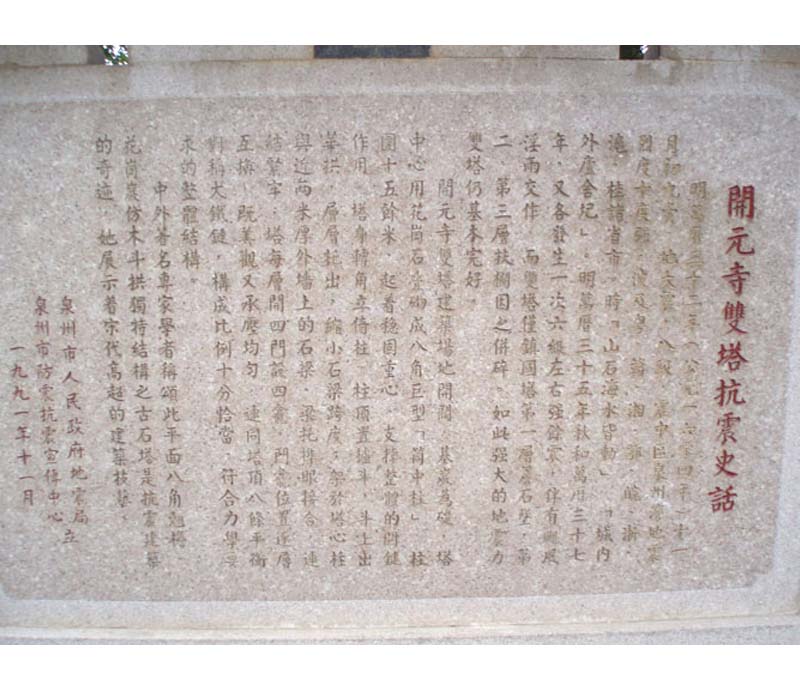 開元寺雙塔抗震史話
明萬曆三十二年（公元一六零四年）十一
月初九夜 地大震 八級 震中區泉州 地震
烈度 波及 湘 皖 浙
桂諸省市。時「山石海水皆動」「城內
外廬舍圮」。明萬曆三十五年秋和萬曆三十七
年，又各發生一次六級左右强餘震，伴有颶風
淫雨交作，而雙塔僅鎮國塔第一層蓋石墜，第
二、第三層扶欄因之併碎。如此强大的地震力
雙塔仍基本完好。
開元寺雙塔建築場地開闊，基巖為礎，塔
中心用花崗石疊砌成八角巨型「筒中柱」，柱
圍十五餘米，起着穩固重心，支撐整體的關鍵
作用。塔身轉角立倚柱，柱頂置櫨斗，斗上出
華拱，層層挑出，縮小石梁跨度，架於塔心柱
與近兩米厚外墻上的石梁，梁托榫眼接合，連
結緊牢。塔每層開四門設四龕，門龕位置逐層
互換，既美觀又承壓均勻，連同塔頂八條平衡
對稱大鐵鏈，構成比例十分恰當，符合力學要
求的整體結構。
中外著名專家學者稱頌此平面八角翹梅
花崗巖仿木斗拱獨特結構之古石塔是抗震建築
的奇迹，她展示着宋代高超的建築技藝。
泉州市人民政府地震局立
泉州市防震抗震宣傳中心
一九九一年十一月